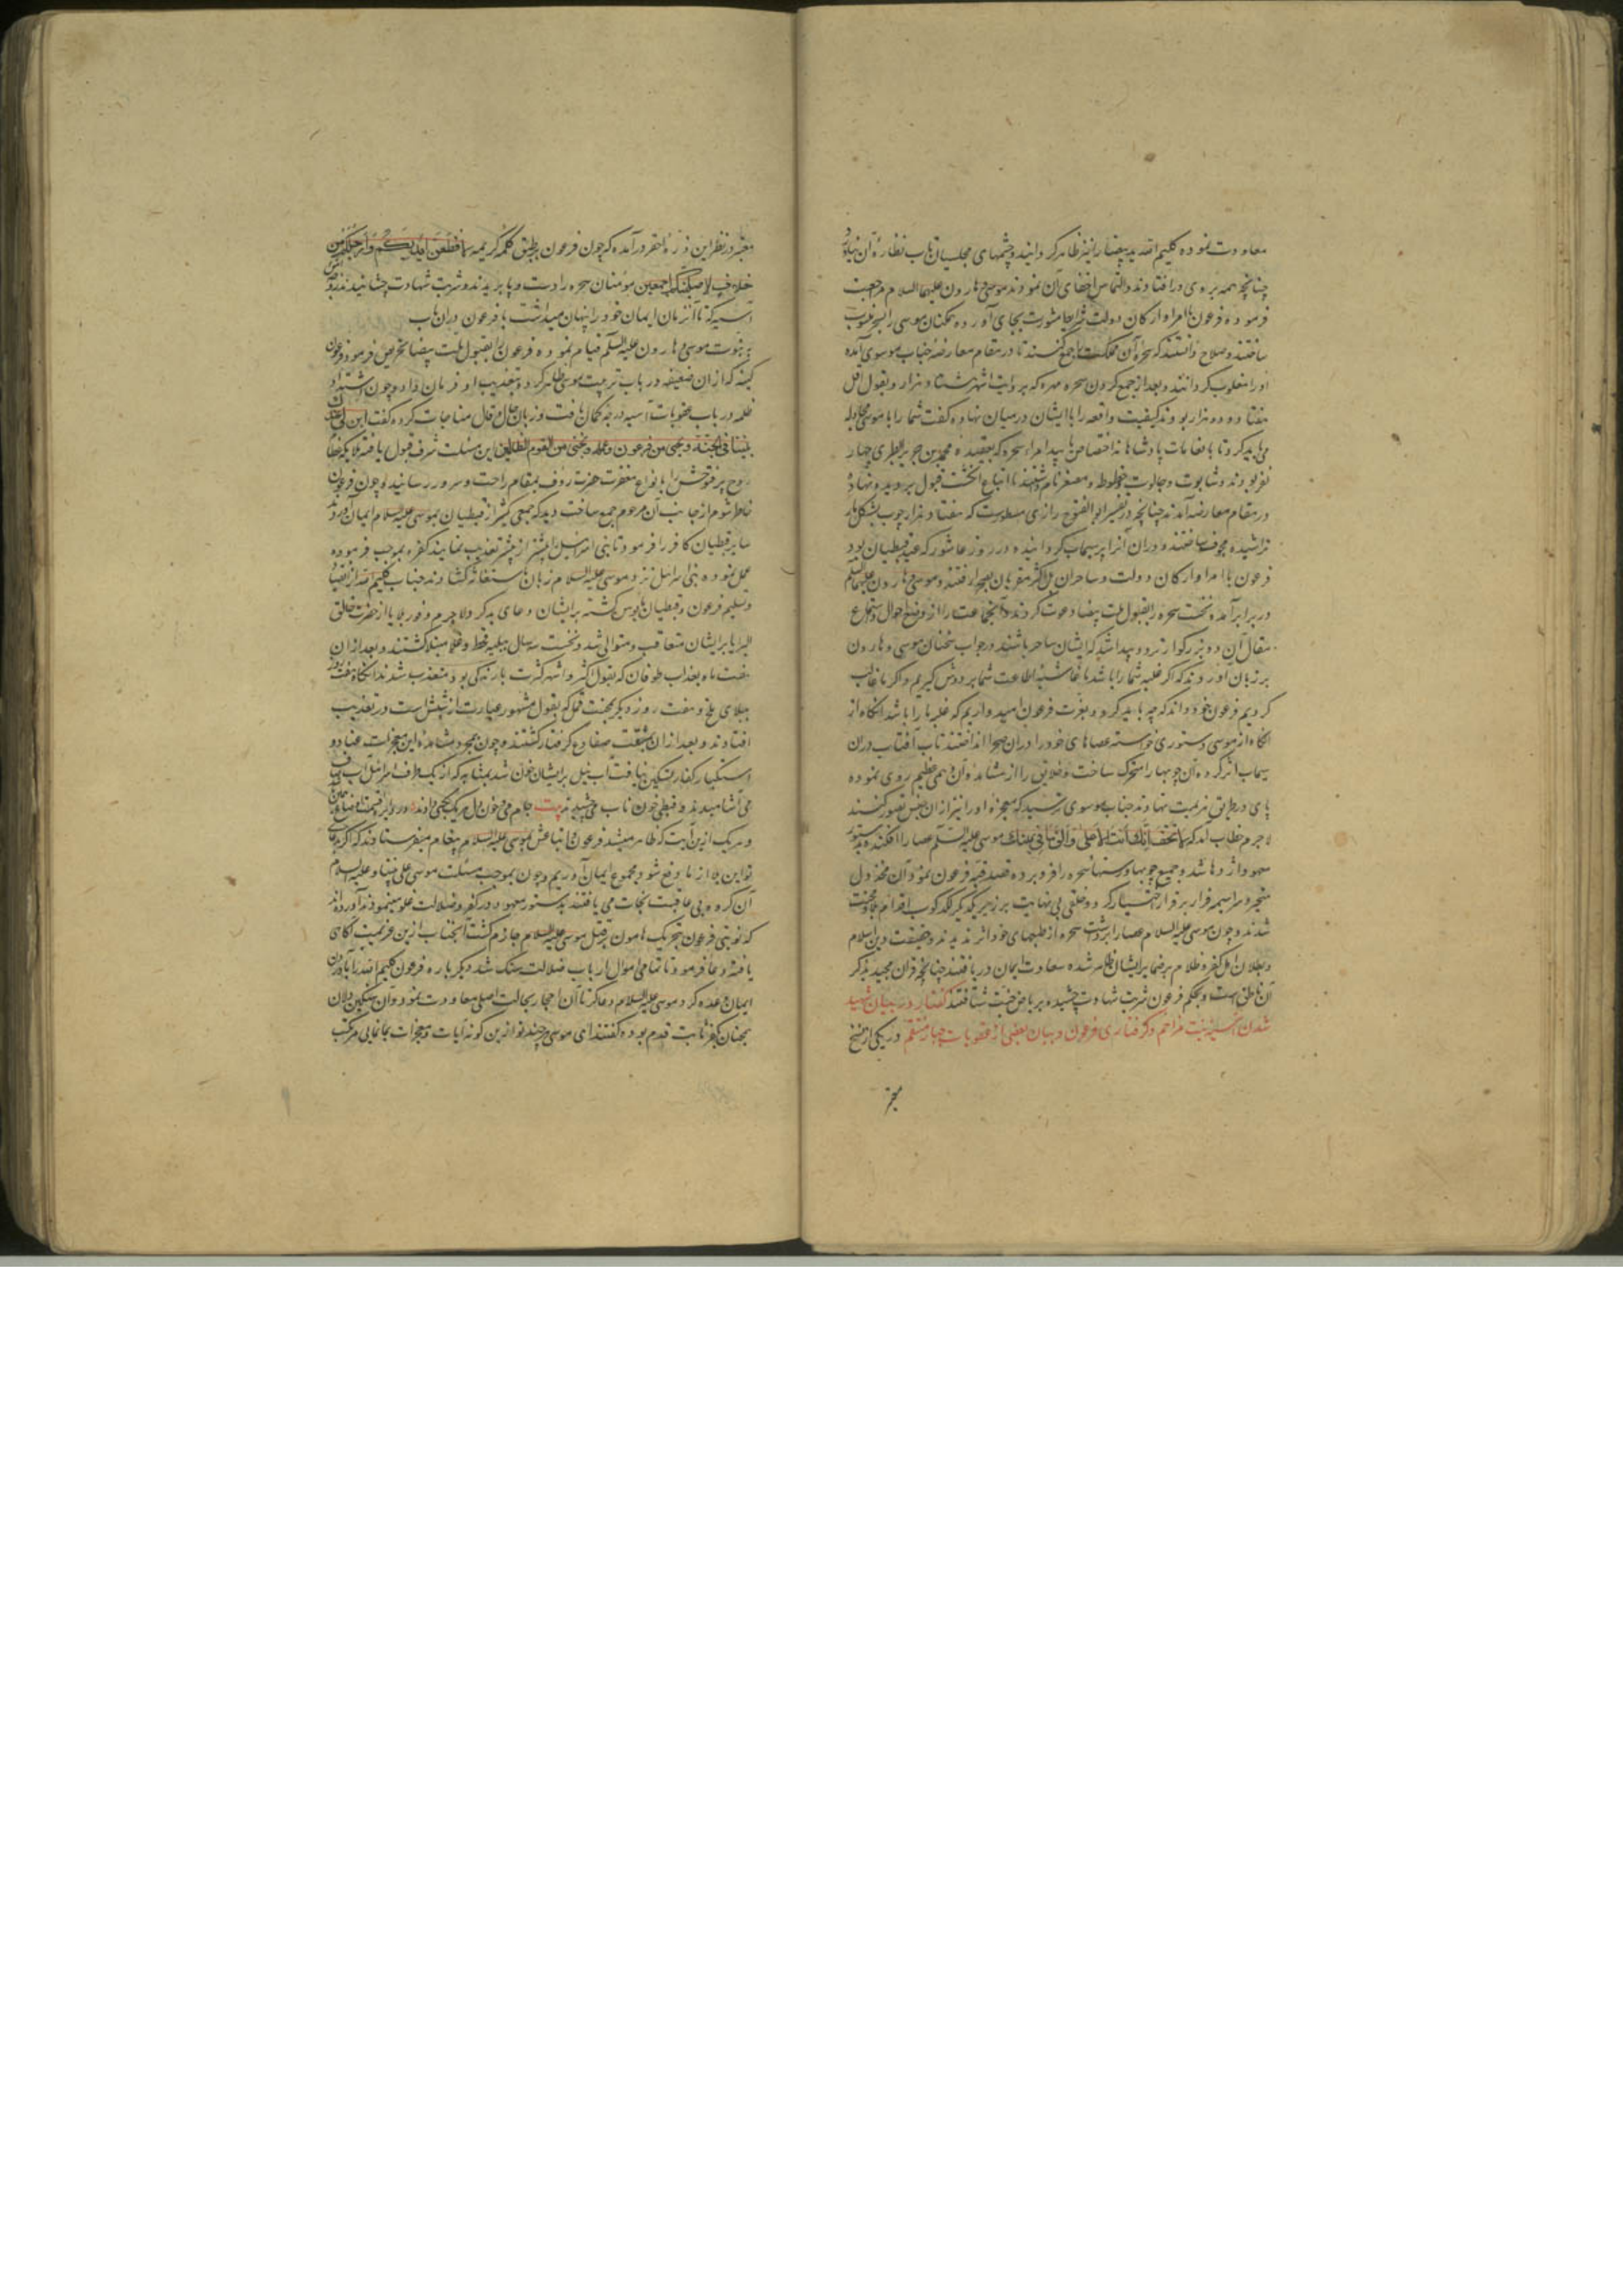 معاودت نموده کلیم الله ید بیضا را نیز ظاهر کردانید و چشمهای مجلسیان تاب نظاره آن نیاورد
چنانچه همه بروی درافتادند و التماس اخفای آن نمودند موسی و هارون علیهما السلام مراجعت
فرموده فرعون با امرا و ارکان دولت شرایط مشورت بجای آورده همکنان موسی را بسحر منسوب
ساختند و صلاح دانستند که سحره آن مملکت را جمع کنند تا در مقام معارضه جناب موسوی آمده
اورا مغلوب کردانند و بعد از جمع کردن سحره مهره که بروایت اشهر هشتاد هزار و بقول اقل
هفتاد و دو هزار بودند کیفیت واقعه را با ایشان در میان نهاده گفت شما را با موسی مجادله
می باید کرد تا بانعامات پادشاهانه اختصاص یابید امراء سحره که بعقیده محمد بن جریر الطبری چهار
نفر بودند و شابوت و جالوت و خطوط و مصفر نام داشتند انگشت قبول بر دیده نهاده
در مقام معارضه آمدند چنانچه در تفسیر ابو الفتوح رازی مسطورست که هفتاد هزار چوب بشکل مار
تراشیده مجوف ساختند و درون آنرا پر سیماب کردانیده در روز عاشورا که عید قبطیان بود
فرعون با امرا و ارکان دولت و ساحران و اکثر مقربان بصحرا رفتند و موسی و هارون علیهما السلم
در برابر آمده نخست سحره را بقبول ملت بیضا دعوت کردند و آنجماعت را از وضع احوال و استماع
مقال آن دو بزرکوار تردد پیدا شد که ایشان ساحر باشند در جواب سخنان موسی و هارون
بر زبان آوردند که اکر غلبه شما را باشد ما غاشیه اطاعت شما بر دوش کیریم و اکر ما غالب
کردیم فرعون خود داند که چه باید کرد و بعزت فرعون امیدواریم که غلبه ما را باشد آنکاه از
انکاه از موسی دستوری خواسته عصاهای خود را در آن صحرا انداختند تاب آفتاب در آن
سیماب اثر کرده آن چوبها را متحرک ساخت و خلایق را از مشاهده آن وهمی عظیم روی نموده
پای در طریق هزیمت نهادند جناب موسوی ترسید که معجزه او را نیز از آن جنس تصور کنند
لاجرم خطاب آمد که لا تخف انک انت الاعلی و الق ما فی یمینک موسی علیه السلم عصا را افکند و بدستور
معهود اژدها شد و جمیع چوبها و رسنهای سحره را فرو برده قصد قبه فرعون نمود آن مخذول
متحیر و سراسیمه فرار بر قرار اختیار کرد و خلقی بی نهایت بر زبر یکدیکر لکدکوب اقدام
شدند و چون موسی علیه السلام عصا را برداشت سحره از طلسمهای خود اثر ندیدند و حقیقت دین اسلام
و بطلان اهل کفر و ظلام بر ضمایر ایشان ظاهر شده سعادت ایمان دریافتند چنانچه قرآن مجید بذکر
آن ناطق است و بحکم فرعون شربت شهادت چشیده بریاض جنت شتافتند گفتار در بیان شهید
شدن آسیه بنت مزاحم و گرفتاری فرعون و بیان بعضی از عقوبات جبار منتقم در یکی از نسخ
معتبره
معتبره در نظر این ذره احقر درآمده که چون فرعون بر طبق کلمه کریمه لاقطعن ایدیکم و ارجلکم من
خلاف لاصلبنکم اجمعین مومنان سحره را دست و پا بریدند و شربت شهادت چشانیدند زوجه اش
آسیه که تا آنزمان ایمان خود را پنهان میداشت با فرعون در آن باب
به نبوت موسی و هارون علیه السلم قیام نموده فرعون را بقبول ملت بیضا تحریص فرمود فرعون
کینه که از آن ضعیفه در باب تربیت موسی ظاهر کرد و بتعذیب او فرمان داد و چون اشتداد
ظلمه در باب عقوبات آسیه درجه کمال یافت و زبان حال و قال مناجات کرده گفت رب ابن لی عندک
بیتا فی الجنة و نجنی من فرعون و عمله و نجنی من القوم الظالمین این مسئلت شرف قبول یافته ملایکه عظام
روح پر فتوحش را بانواع مغفرت حضرت رؤف بمقام راحت و سرور رسانید و چون فرعون
خاطر شوم از جانب آن مرحوم جمع ساخت دید که جمعی کثیر از قبطیان بموسی علیه السلام ایمان آوردند
سایر قبطیان کافر را فرمود تا بنی اسرائیل را بیشتر از پیشتر تعذیب نمایند کفره بموجب فرموده
عمل نموده بنی اسرائیل نزد موسی علیه السلام زبان باستغاثه گشادند جناب کلیم الله از انقیاد
و تسلیم فرعون و قبطیان مایوس گشته بر ایشان دعای بد کرد لاجرم وفور بلایا از حضرت خالق
البرایا بر ایشان متعاقب و متوالی شد و نخست سه سال ببلیه قحط و غلا مبتلا کشتند و بعد از آن
هفت ماه بعذاب طوفان که بقول اکثر و اشهر کثرت بارندکی بود معذب شدند آنکاه هفت روز
ببلای ملخ و هفت روز دیکر بمحنت قمل که بقول مشهور عبارت از شپش است در تعذیب
افتادند و بعد از آن بمشقت ضفادع کرفتار کشتند و چون بمجرد مشاهده این معجزات عناد و
استکبار کفار تسکین نیافت آب نیل بر ایشان خون شد بمثابه که از یک ظرف اسرائیلی آب صاف
می آشامیدند و قبطی خون ناب می چشیدند بیت جام می و خون دل هر یک بکسی دادند در دایره قسمت اوضاع چنین باشد
و هر یک ازین آیت که ظاهر میشد فرعون و اتباعش بموسی علیه السلام پیغام میفرستادند که اکر بدعای
تو این بلا از ما دفع شود مجموع ایمان آوریم و چون بموجب مسئلت موسی علی نبینا و علیه السلام
آن کروه بی عاقبت نجات می یافتند بدستور معهود در کفر و ضلالت غلو مینمودند آورده اند
که نوبتی فرعون بتحریک هامون بر قتل موسی علیه السلام جازم کشت آنجناب ازین عزیمت آکاهی
یافته دعا فرمود تا تمامی اموال ارباب ضلالت سنک شد دیکر باره فرعون کلیم الله را بآوردن
ایمان وعده کرد موسی علیه السلام دعا کرد تا آن احجار بحالت اصلی معاودت نمود و آن سنکین دلان
همچنان بر کفر ثابت قدم بوده گفتند ای موسی هر چند تو ازین کونه آیات و معجزات بما نمایی مرتکب